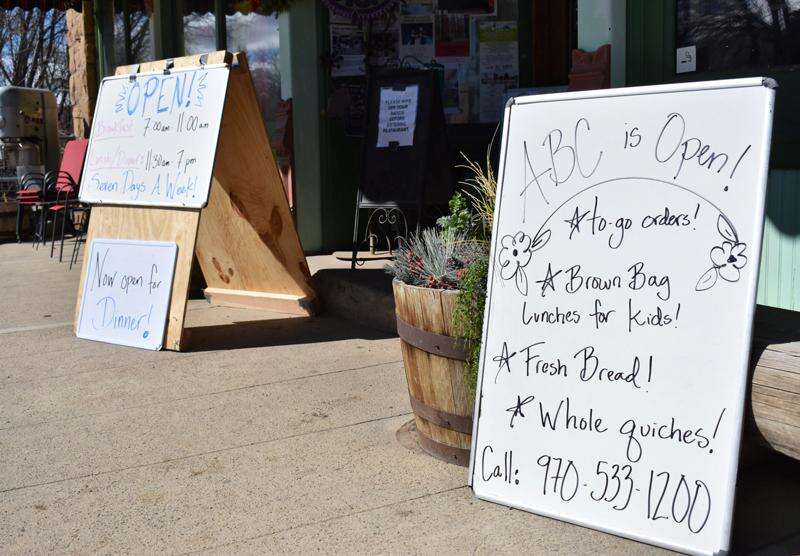 OPEN!
Breakfast 7:00am 11:00am
Lunch/Dinner 11:30am - 7pm
Seven Days A Week!
Now open for
Dinner!
PLEASE
BEFORE
ENTERING
RESTAURANT.
ABC is Open!
to-go orders!
Brown Bag
Lunches for Kids!
Fresh Bread!
Whole quiches!
Call: 970-533-1200